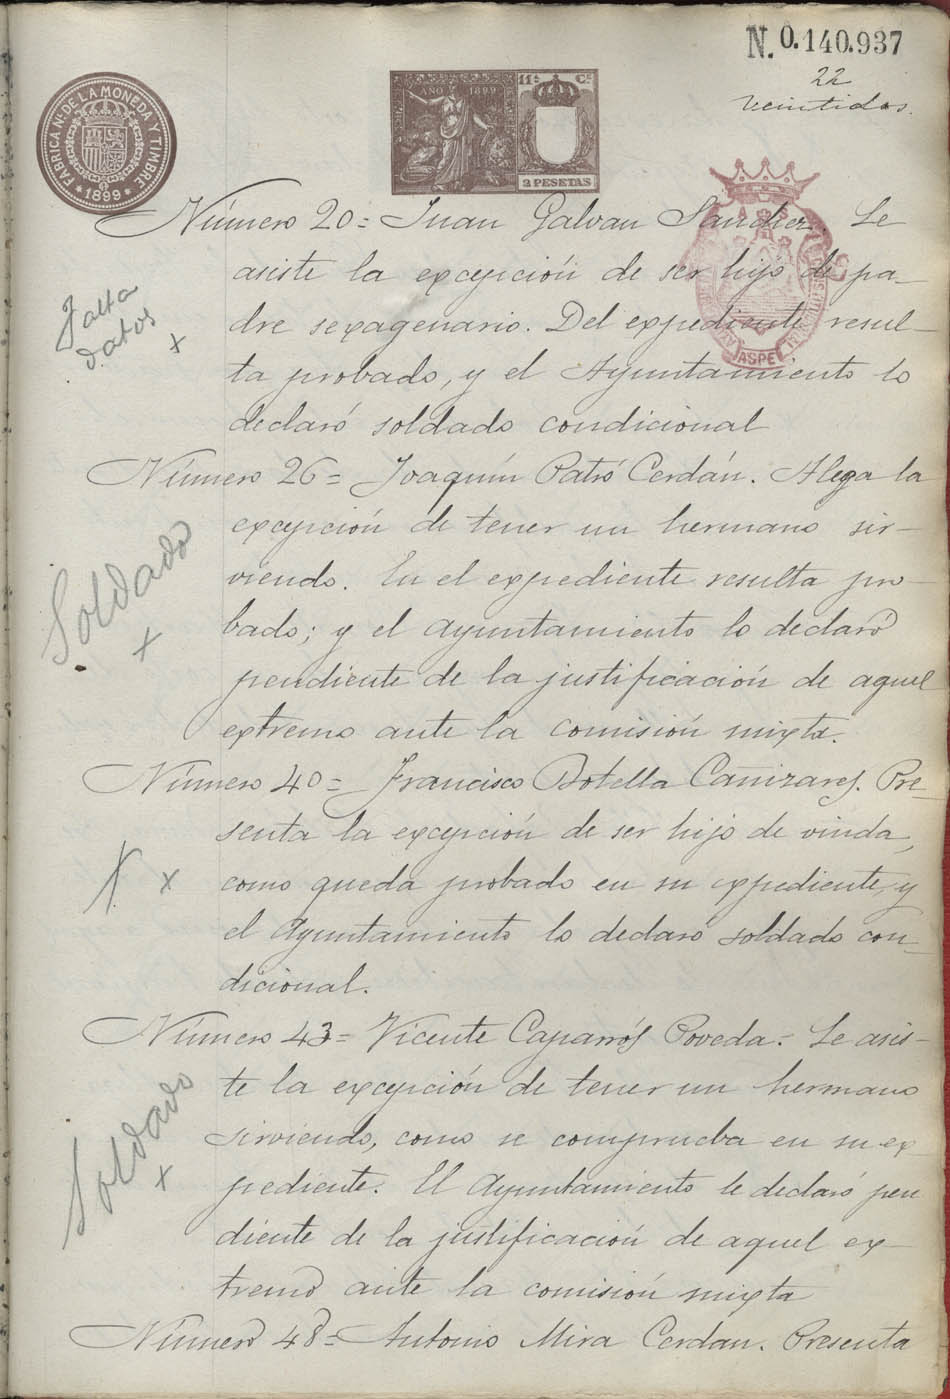 N. 0.140.937
22
veintidos.
FABRICA Nl. DE LA MONEDA Y TIMBRE
* 1899 *
AÑO 1899
11ª Cª
2 PESETAS
ASPE
Número 20= Juan Galvan Sanchez. Le
asiste la excepción de ser hijo de pa-
dre sexagenario. Del expediente resul-
ta probado, y el Ayuntamiento lo
declaró soldado condicional
Falta
datos
x
Número 26= Joaquín Patró Cerdán. Alega la
excepción de tener un hermano sir-
viendo. En el expediente resulta pro-
bado; y el Ayuntamiento lo declaró
pendiente de la justificación de aquel
extremo ante la comisión mixta.
Soldado
x
Número 40= Francisco Botella Cañizares. Pre-
senta la excepción de ser hijo de viuda,
como queda probado en su expediente, y
el Ayuntamiento lo declaró soldado con-
dicional.
x
Número 43= Vicente Caparrós Poveda. Le asis-
te la excepción de tener un hermano
sirviendo, como se comprueba en su ex-
pediente. El Ayuntamiento le declaró pen
diente de la justificación de aquel ex-
tremo ante la comisión mixta
Soldado
x
Número 48= Antonio Mira Cerdan. Presenta